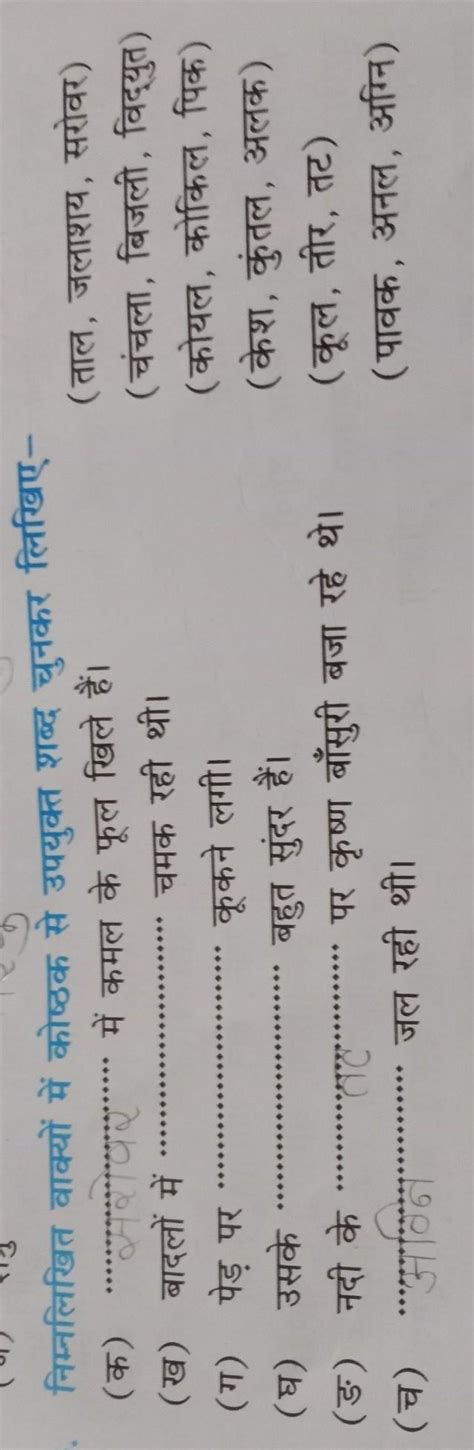 निम्नलिखित वाक्यों में कोष्ठक से उपयुक्त शब्द चुनकर लिखिए–
(क) ....सरोवर.... में कमल के फूल खिले हैं। (ताल, जलाशय, सरोवर)
(ख) बादलों में .................... चमक रही थी। (चंचला, बिजली, विद्युत)
(ग) पेड़ पर .................... कूकने लगी। (कोयल, कोकिल, पिक)
(घ) उसके .................... बहुत सुंदर हैं। (केश, कुंतल, अलक)
(ङ) नदी के ....तट.... पर कृष्ण बाँसुरी बजा रहे थे। (कूल, तीर, तट)
(च) ....अग्नि.... जल रही थी। (पावक, अनल, अग्नि)